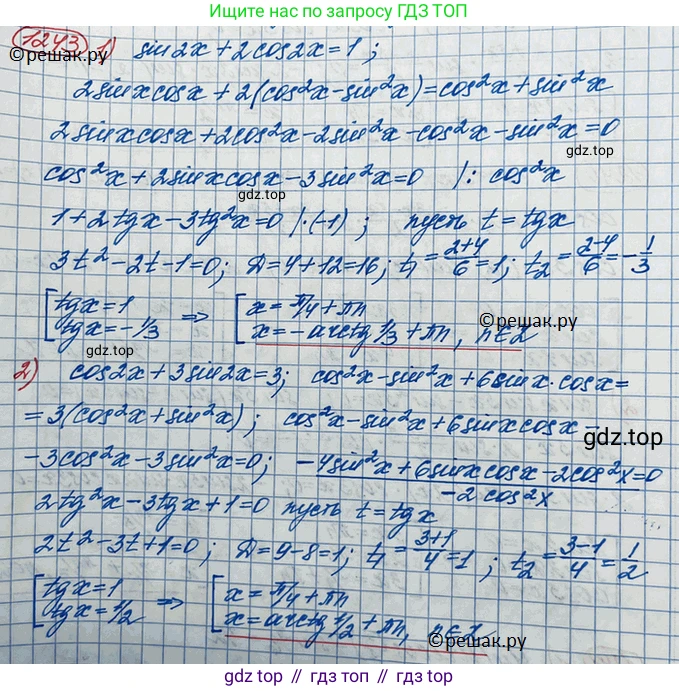 Пишите нам по запросу ГДЗ ТОП
1243 1) sin2x + 2cos2x = 1;
2sinxcosx + 2(cos²x - sin²x) = cos²x + sin²x
2sinxcosx + 2cos²x - 2sin²x - cos²x - sin²x = 0
gdz.top
cos²x + 2sinxcosx - 3sin²x = 0 /: cos²x
1 + 2tgx - 3tg²x = 0 /·(-1); пусть t = tgx
3t² - 2t - 1 = 0; D = 4 + 12 = 16; t₁ = (2+4)/6 = 1; t₂ = (2-4)/6 = -1/3
[tgx = 1 ⇒ [x = π/4 + πn
©reшak.ру
tgx = -1/3 x = -arctg 1/3 + πn, n∈Z
gdz.top
2) cos2x + 3sin2x = 3; cos²x - sin²x + 6sinx·cosx =
= 3(cos²x + sin²x); cos²x - sin²x + 6sinxcosx -
gdz.top
- 3cos²x - 3sin²x = 0; (-4sin²x + 6sinxcosx - 2cos²x = 0)/(-2cos²x)
2tg²x - 3tgx + 1 = 0 пусть t = tgx
2t² - 3t + 1 = 0; D = 9 - 8 = 1; t₁ = (3+1)/4 = 1; t₂ = (3-1)/4 = 1/2
[tgx = 1 ⇒ [x = π/4 + πn
tgx = 1/2 x = arctg 1/2 + πn, n∈Z
©reшak.ру
Больше решений на gdz.top